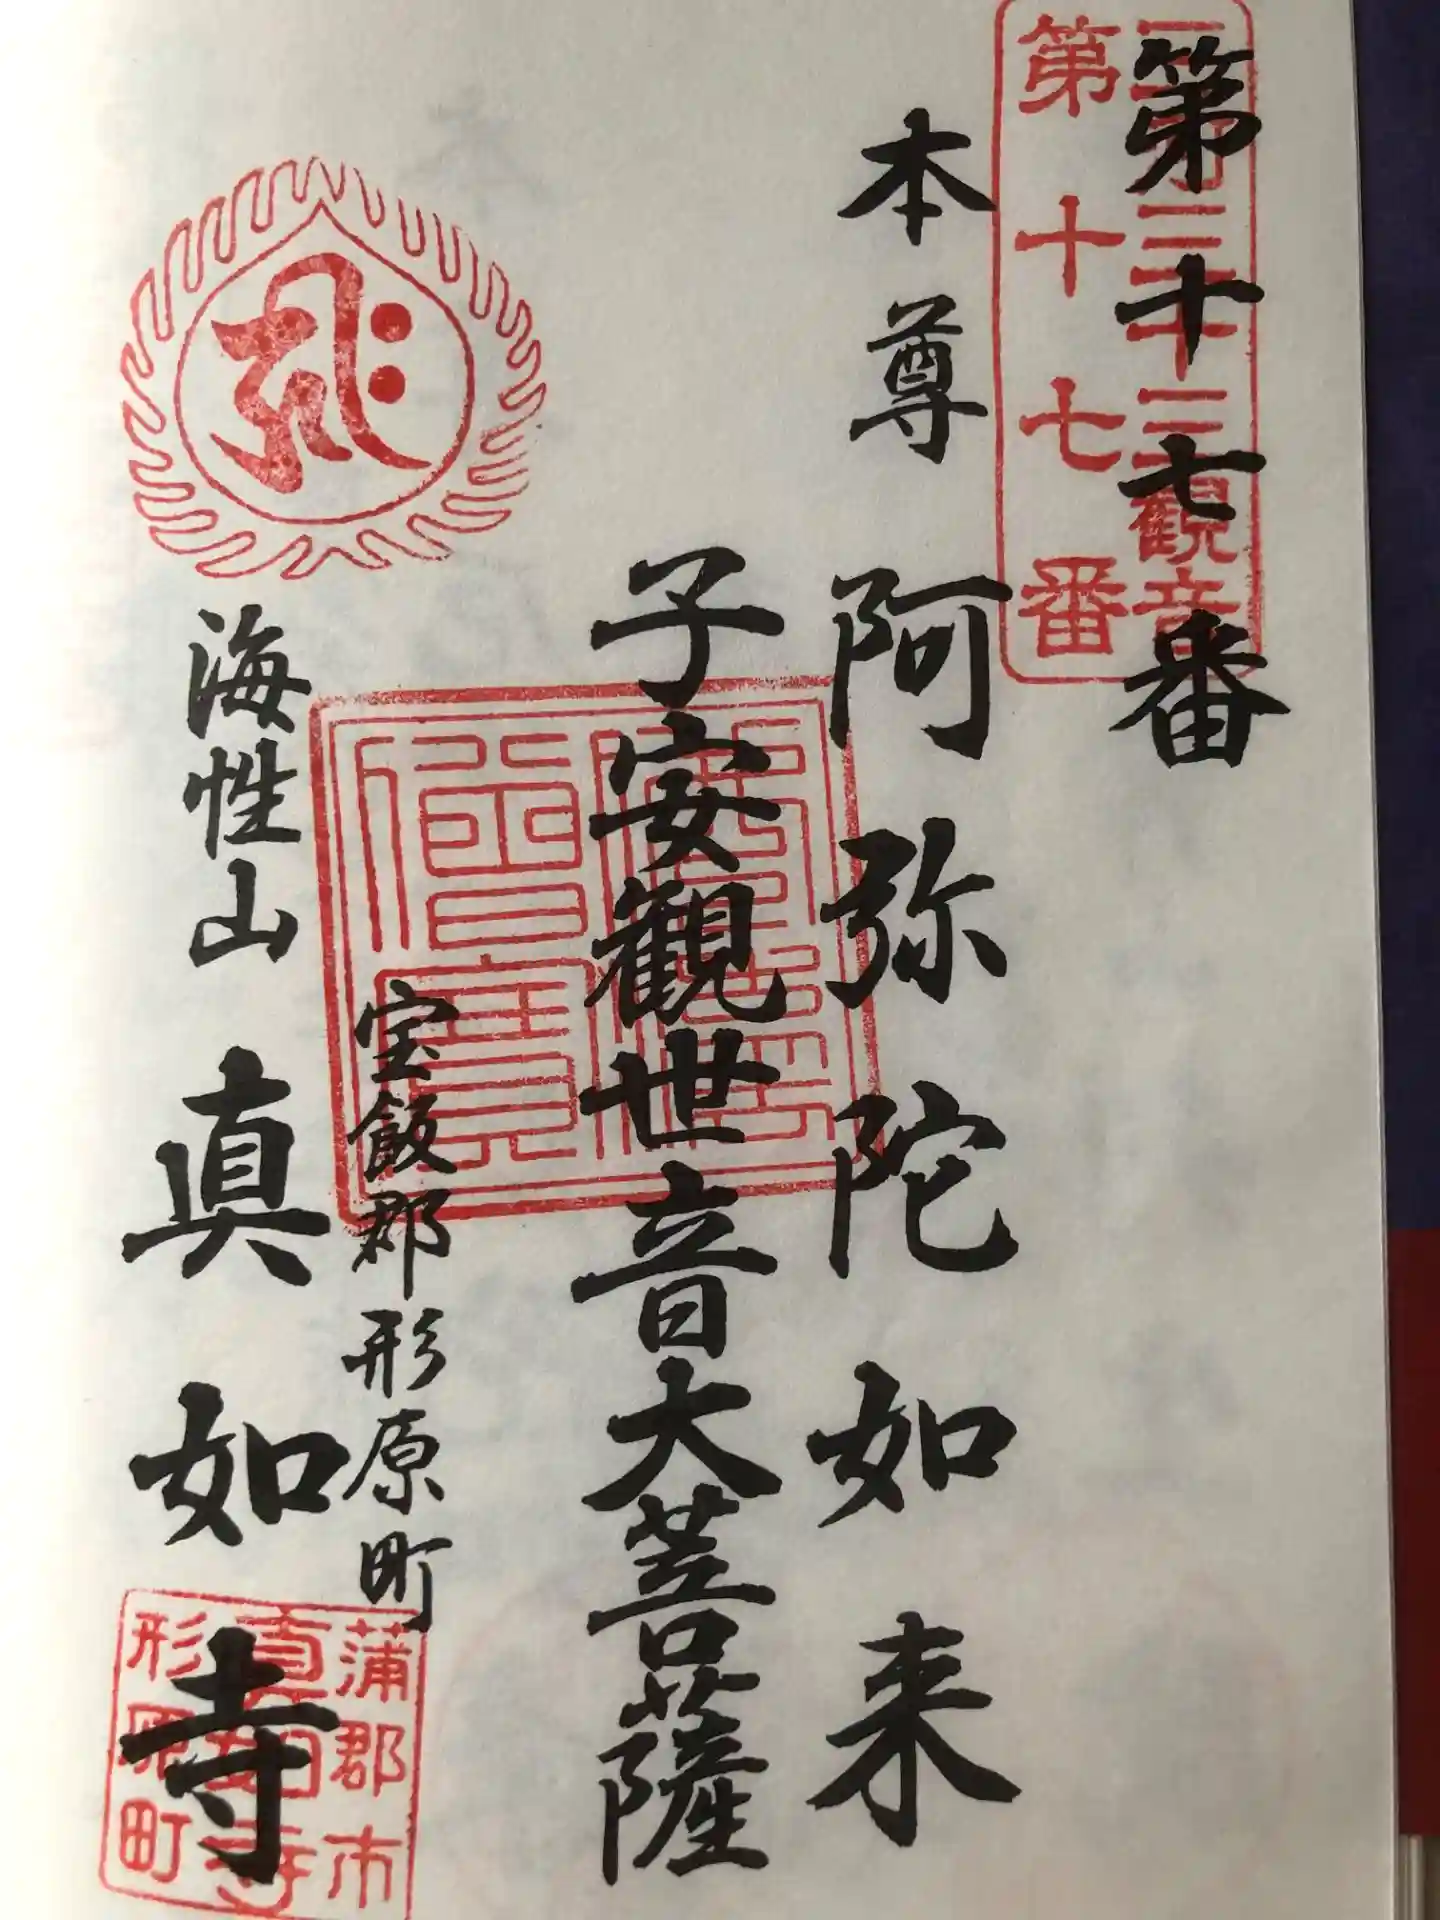 第十七番
三河三十三観音
第十七番
本尊 阿弥陀如来
子安観世音大菩薩
宝飯郡形原町
海性山 真如寺
蒲郡市
真如寺
形原町